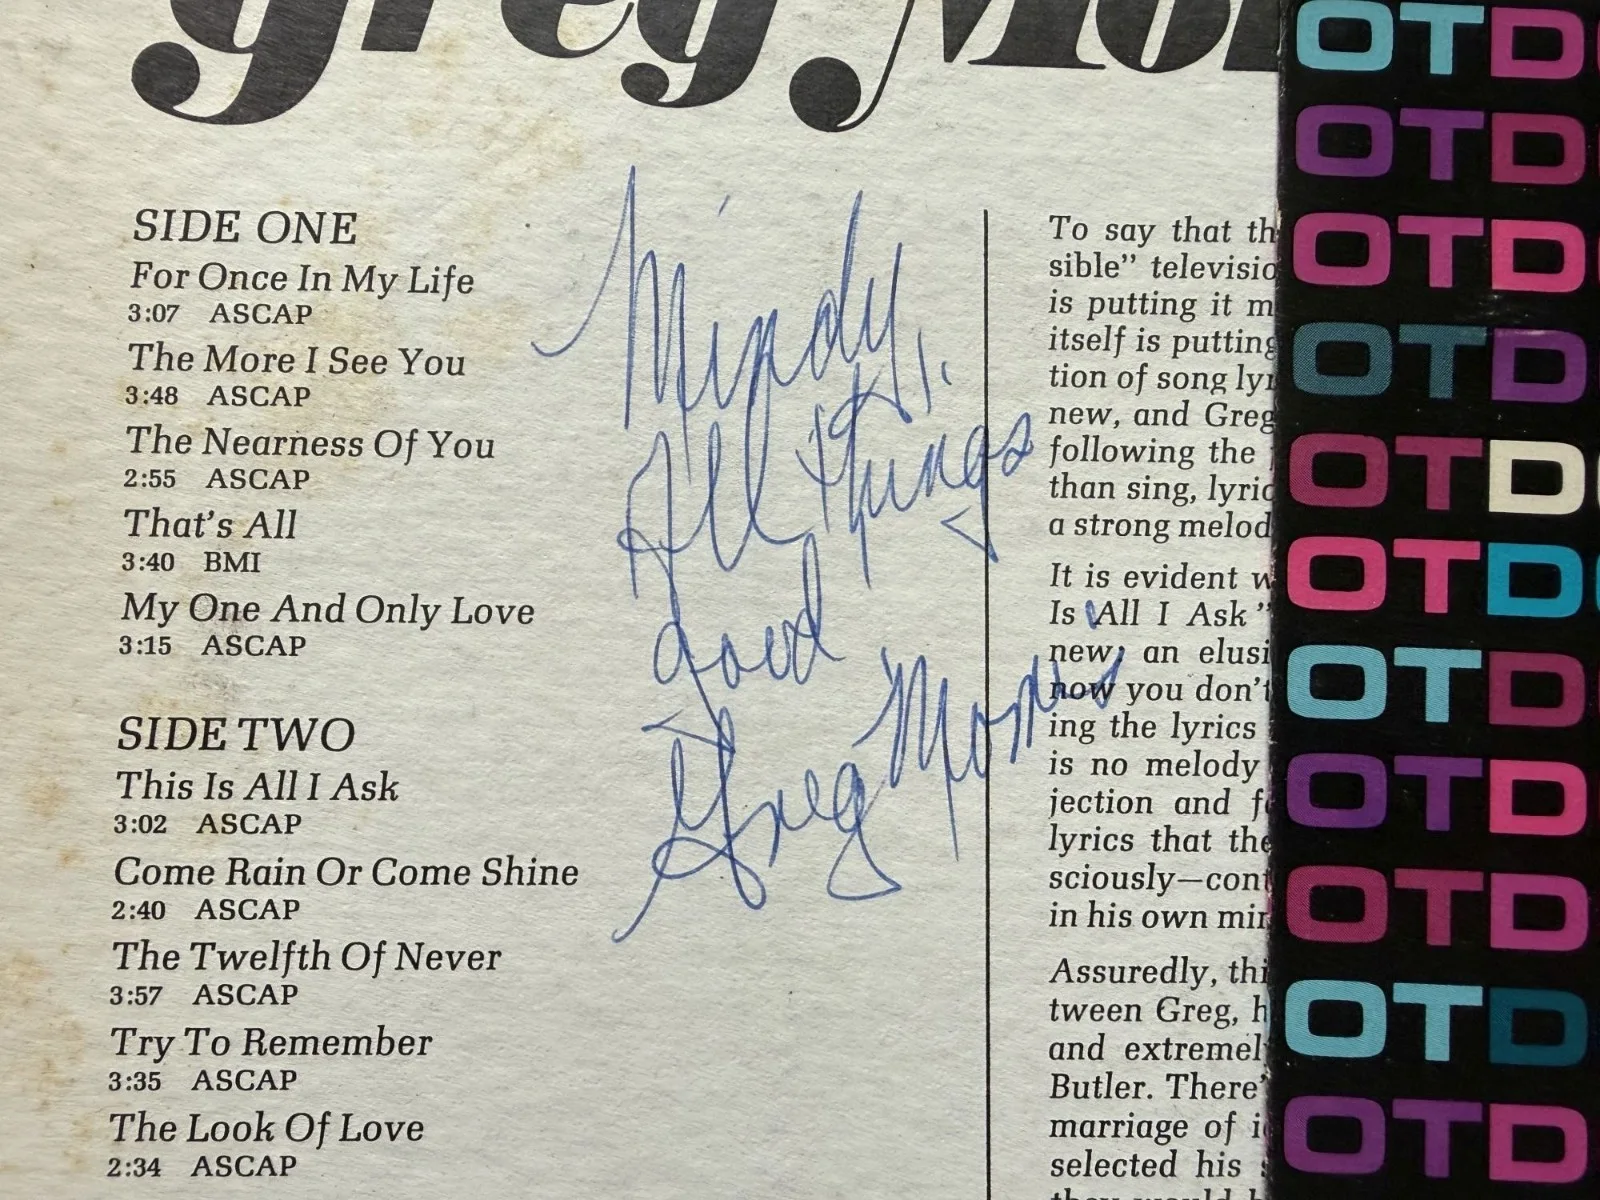 Greg Mor
SIDE ONE
For Once In My Life
3:07 ASCAP
The More I See You
3:48 ASCAP
The Nearness Of You
2:55 ASCAP
That's All
3:40 BMI
My One And Only Love
3:15 ASCAP
SIDE TWO
This Is All I Ask
3:02 ASCAP
Come Rain Or Come Shine
2:40 ASCAP
The Twelfth Of Never
3:57 ASCAP
Try To Remember
3:35 ASCAP
The Look Of Love
2:34 ASCAP
Mindy,
All things
good
Greg Morris
To say that th
sible" televisio
is putting it m
itself is putting
tion of song lyr
new, and Greg
following the
than sing, lyric
a strong melod
It is evident w
Is All I Ask"
new; an elusi
now you don't
ing the lyrics
is no melody
jection and f
lyrics that the
sciously—cont
in his own min
Assuredly, thi
tween Greg, h
and extremel
Butler. There'
marriage of i
selected his
they would b
OTD
OTD
OTD
OTD
OTD
OTD
OTD
OTD
OTD
OTD
OTD